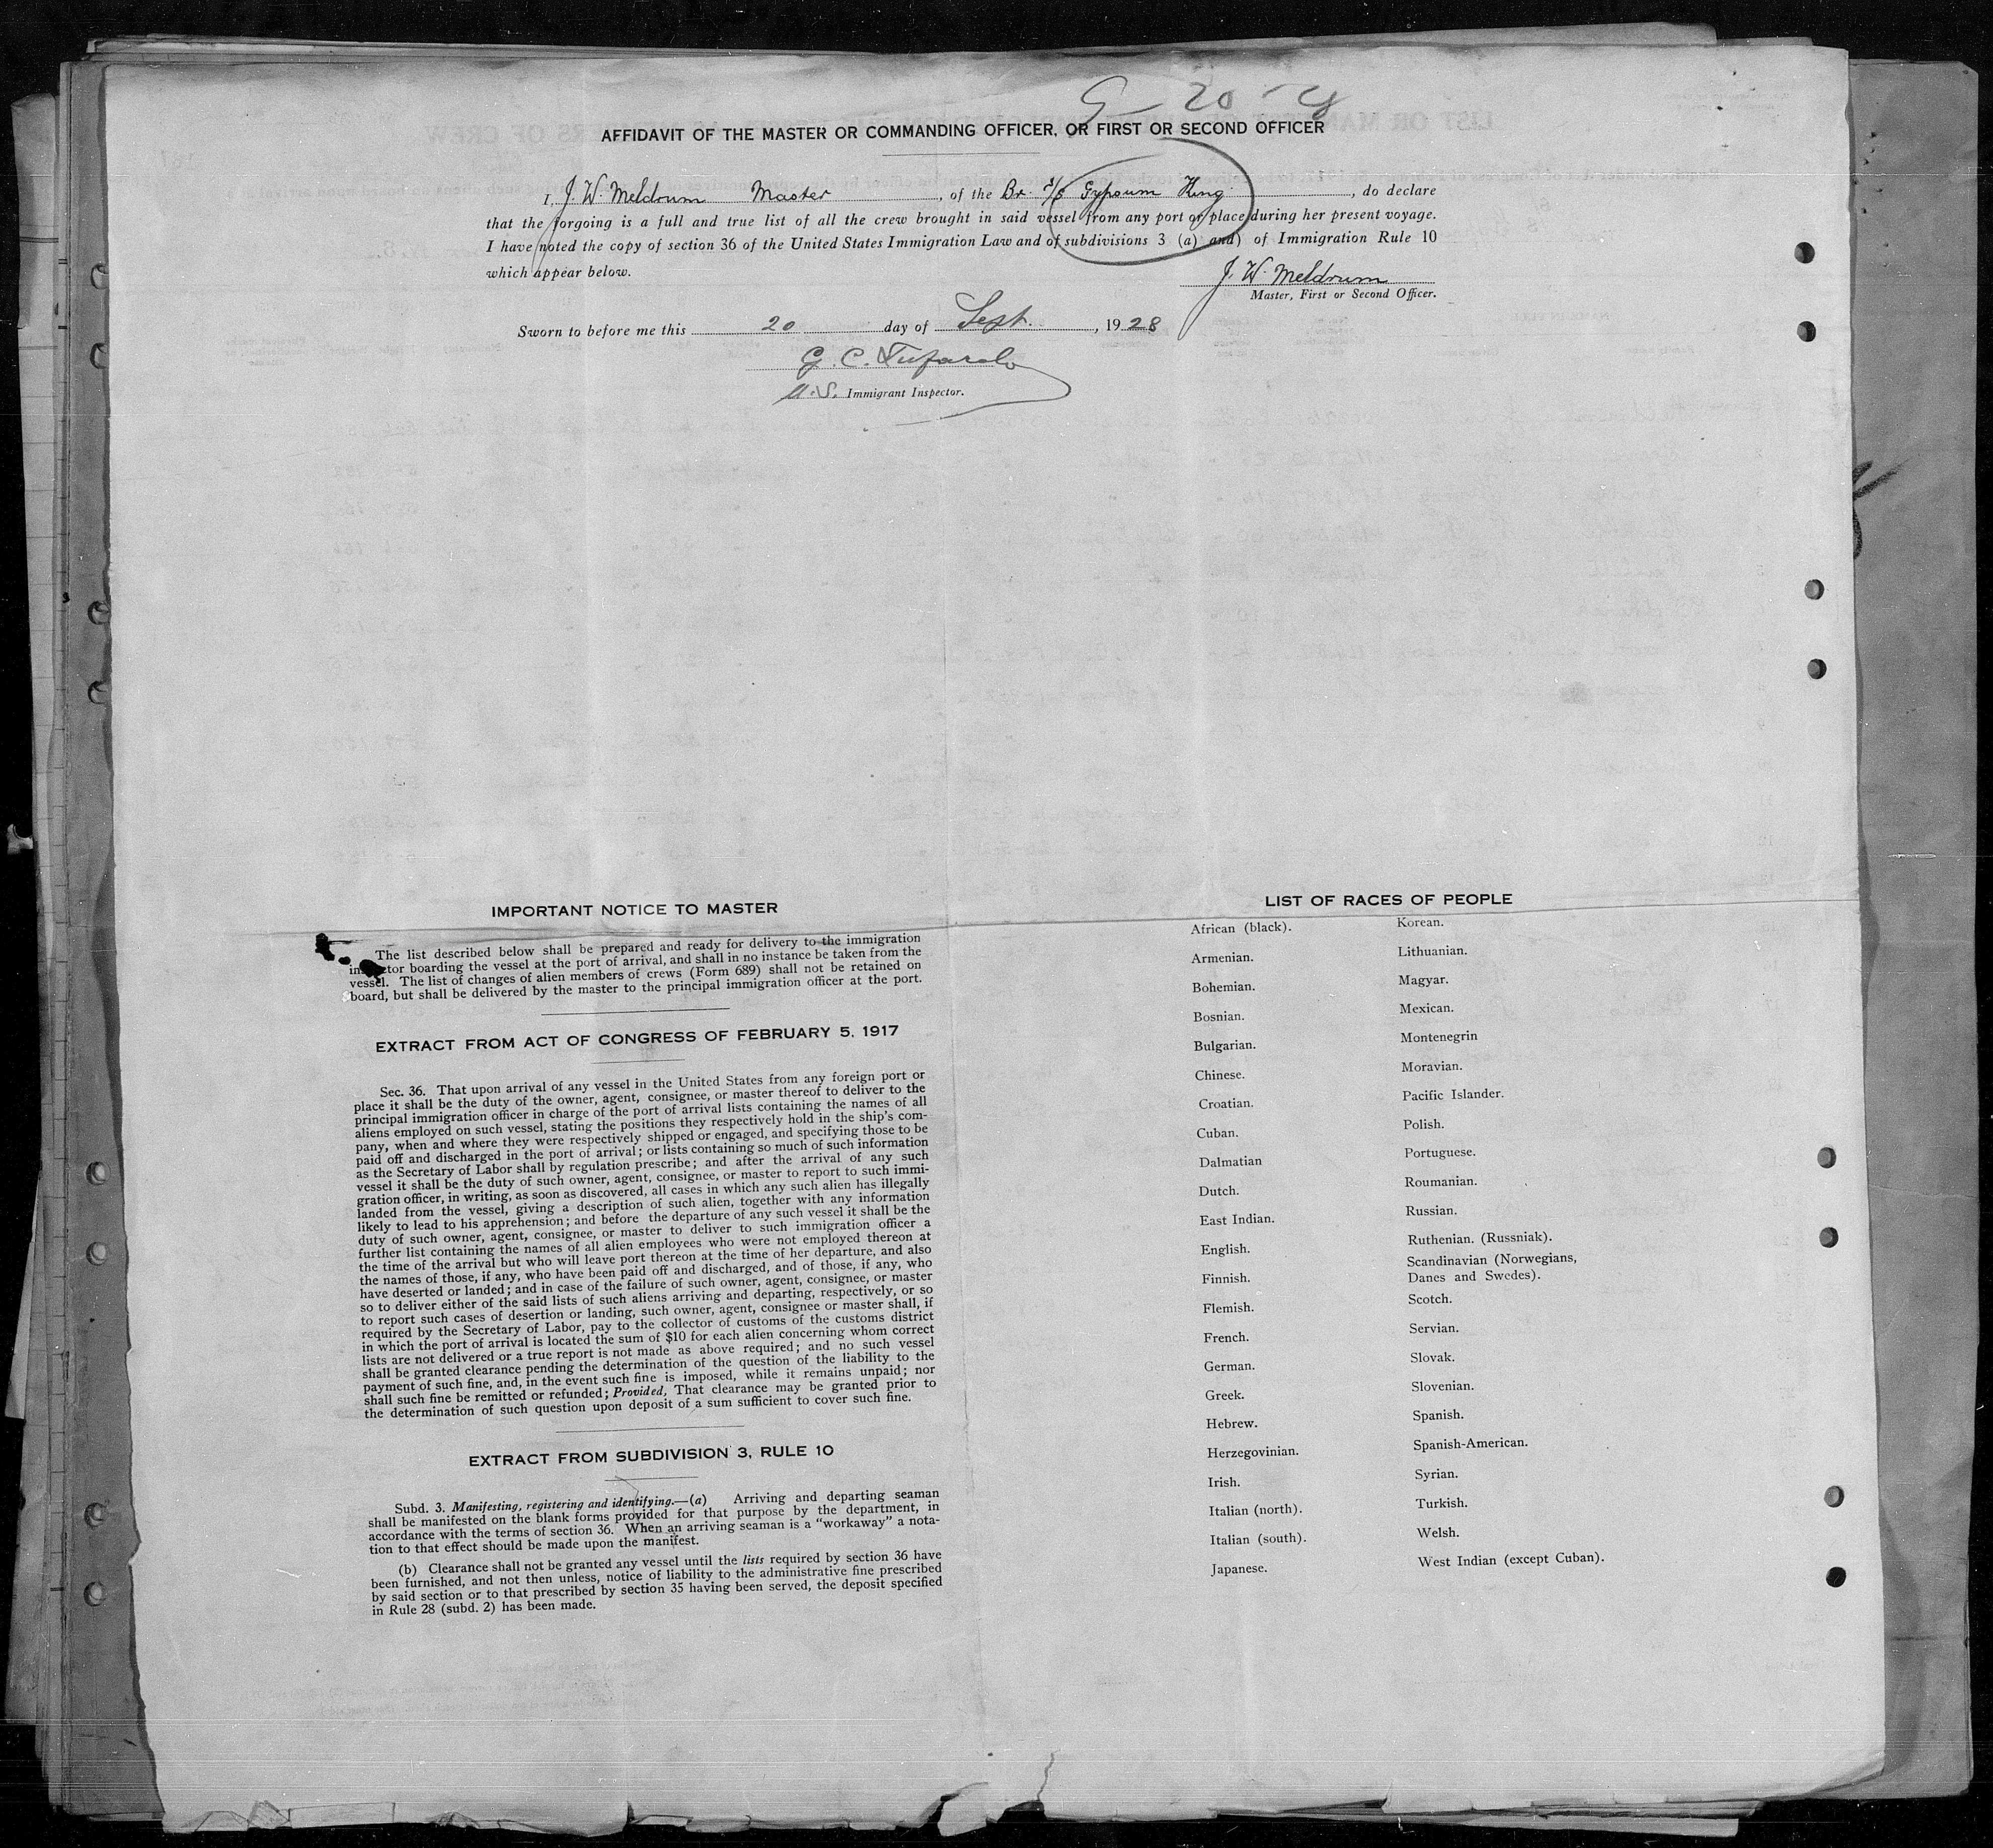 AFFIDAVIT OF THE MASTER OR COMMANDING OFFICER, OR FIRST OR SECOND OFFICER
I, J. W. Meldrum Master, of the Br. S/S Gypsum King, do declare
that the forgoing is a full and true list of all the crew brought in said vessel from any port or place during her present voyage.
I have noted the copy of section 36 of the United States Immigration Law and of subdivisions 3 (a) and) of Immigration Rule 10
which appear below.
J. W. Meldrum
Master, First or Second Officer.
Sworn to before me this 20 day of Sept., 1928
G. C.
U.S. Immigrant Inspector.
IMPORTANT NOTICE TO MASTER
The list described below shall be prepared and ready for delivery to the immigration
inspector boarding the vessel at the port of arrival, and shall in no instance be taken from the
vessel. The list of changes of alien members of crews (Form 689) shall not be retained on
board, but shall be delivered by the master to the principal immigration officer at the port.
EXTRACT FROM ACT OF CONGRESS OF FEBRUARY 5, 1917
Sec. 36. That upon arrival of any vessel in the United States from any foreign port or
place it shall be the duty of the owner, agent, consignee, or master thereof to deliver to the
principal immigration officer in charge of the port of arrival lists containing the names of all
aliens employed on such vessel, stating the positions they respectively hold in the ship's com-
pany, when and where they were respectively shipped or engaged, and specifying those to be
paid off and discharged in the port of arrival; or lists containing so much of such information
as the Secretary of Labor shall by regulation prescribe; and after the arrival of any such
vessel it shall be the duty of such owner, agent, consignee, or master to report to such immi-
gration officer, in writing, as soon as discovered, all cases in which any such alien has illegally
landed from the vessel, giving a description of such alien, together with any information
likely to lead to his apprehension; and before the departure of any such vessel it shall be the
duty of such owner, agent, consignee, or master to deliver to such immigration officer a
further list containing the names of all alien employees who were not employed thereon at
the time of the arrival but who will leave port thereon at the time of her departure, and also
the names of those, if any, who have been paid off and discharged, and of those, if any, who
have deserted or landed; and in case of the failure of such owner, agent, consignee, or master
so to deliver either of the said lists of such aliens arriving and departing, respectively, or so
to report such cases of desertion or landing, such owner, agent, consignee or master shall, if
required by the Secretary of Labor, pay to the collector of customs of the customs district
in which the port of arrival is located the sum of $10 for each alien concerning whom correct
lists are not delivered or a true report is not made as above required; and no such vessel
shall be granted clearance pending the determination of the question of the liability to the
payment of such fine, and, in the event such fine is imposed, while it remains unpaid; nor
shall such fine be remitted or refunded; Provided, That clearance may be granted prior to
the determination of such question upon deposit of a sum sufficient to cover such fine.
EXTRACT FROM SUBDIVISION 3, RULE 10
Subd. 3. Manifesting, registering and identifying.—(a) Arriving and departing seaman
shall be manifested on the blank forms provided for that purpose by the department, in
accordance with the terms of section 36. When an arriving seaman is a "workaway" a nota-
tion to that effect should be made upon the manifest.
(b) Clearance shall not be granted any vessel until the lists required by section 36 have
been furnished, and not then unless, notice of liability to the administrative fine prescribed
by said section or to that prescribed by section 35 having been served, the deposit specified
in Rule 28 (subd. 2) has been made.
LIST OF RACES OF PEOPLE
African (black).
Armenian.
Bohemian.
Bosnian.
Bulgarian.
Chinese.
Croatian.
Cuban.
Dalmatian
Dutch.
East Indian.
English.
Finnish.
Flemish.
French.
German.
Greek.
Hebrew.
Herzegovinian.
Irish.
Italian (north).
Italian (south).
Japanese.
Korean.
Lithuanian.
Magyar.
Mexican.
Montenegrin
Moravian.
Pacific Islander.
Polish.
Portuguese.
Roumanian.
Russian.
Ruthenian. (Russniak).
Scandinavian (Norwegians,
Danes and Swedes).
Scotch.
Servian.
Slovak.
Slovenian.
Spanish.
Spanish-American.
Syrian.
Turkish.
Welsh.
West Indian (except Cuban).